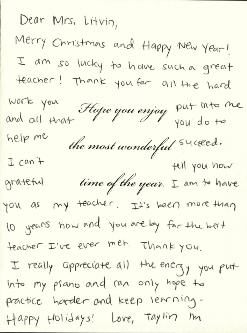 Dear Mrs. Litvin,
Merry Christmas and Happy New Year!
I am so lucky to have such a great
teacher! Thank you for all the hard
work you put into me
Hope you enjoy
and all that you do to
help me succeed.
the most wonderful
I can't tell you how
grateful I am to have
time of the year
you as my teacher. It's been more than
10 years now and you are by far the best
teacher I've ever met. Thank you.
I really appreciate all the energy you put
into my piano and can only hope to
practice harder and keep learning.
Happy Holidays! Love,